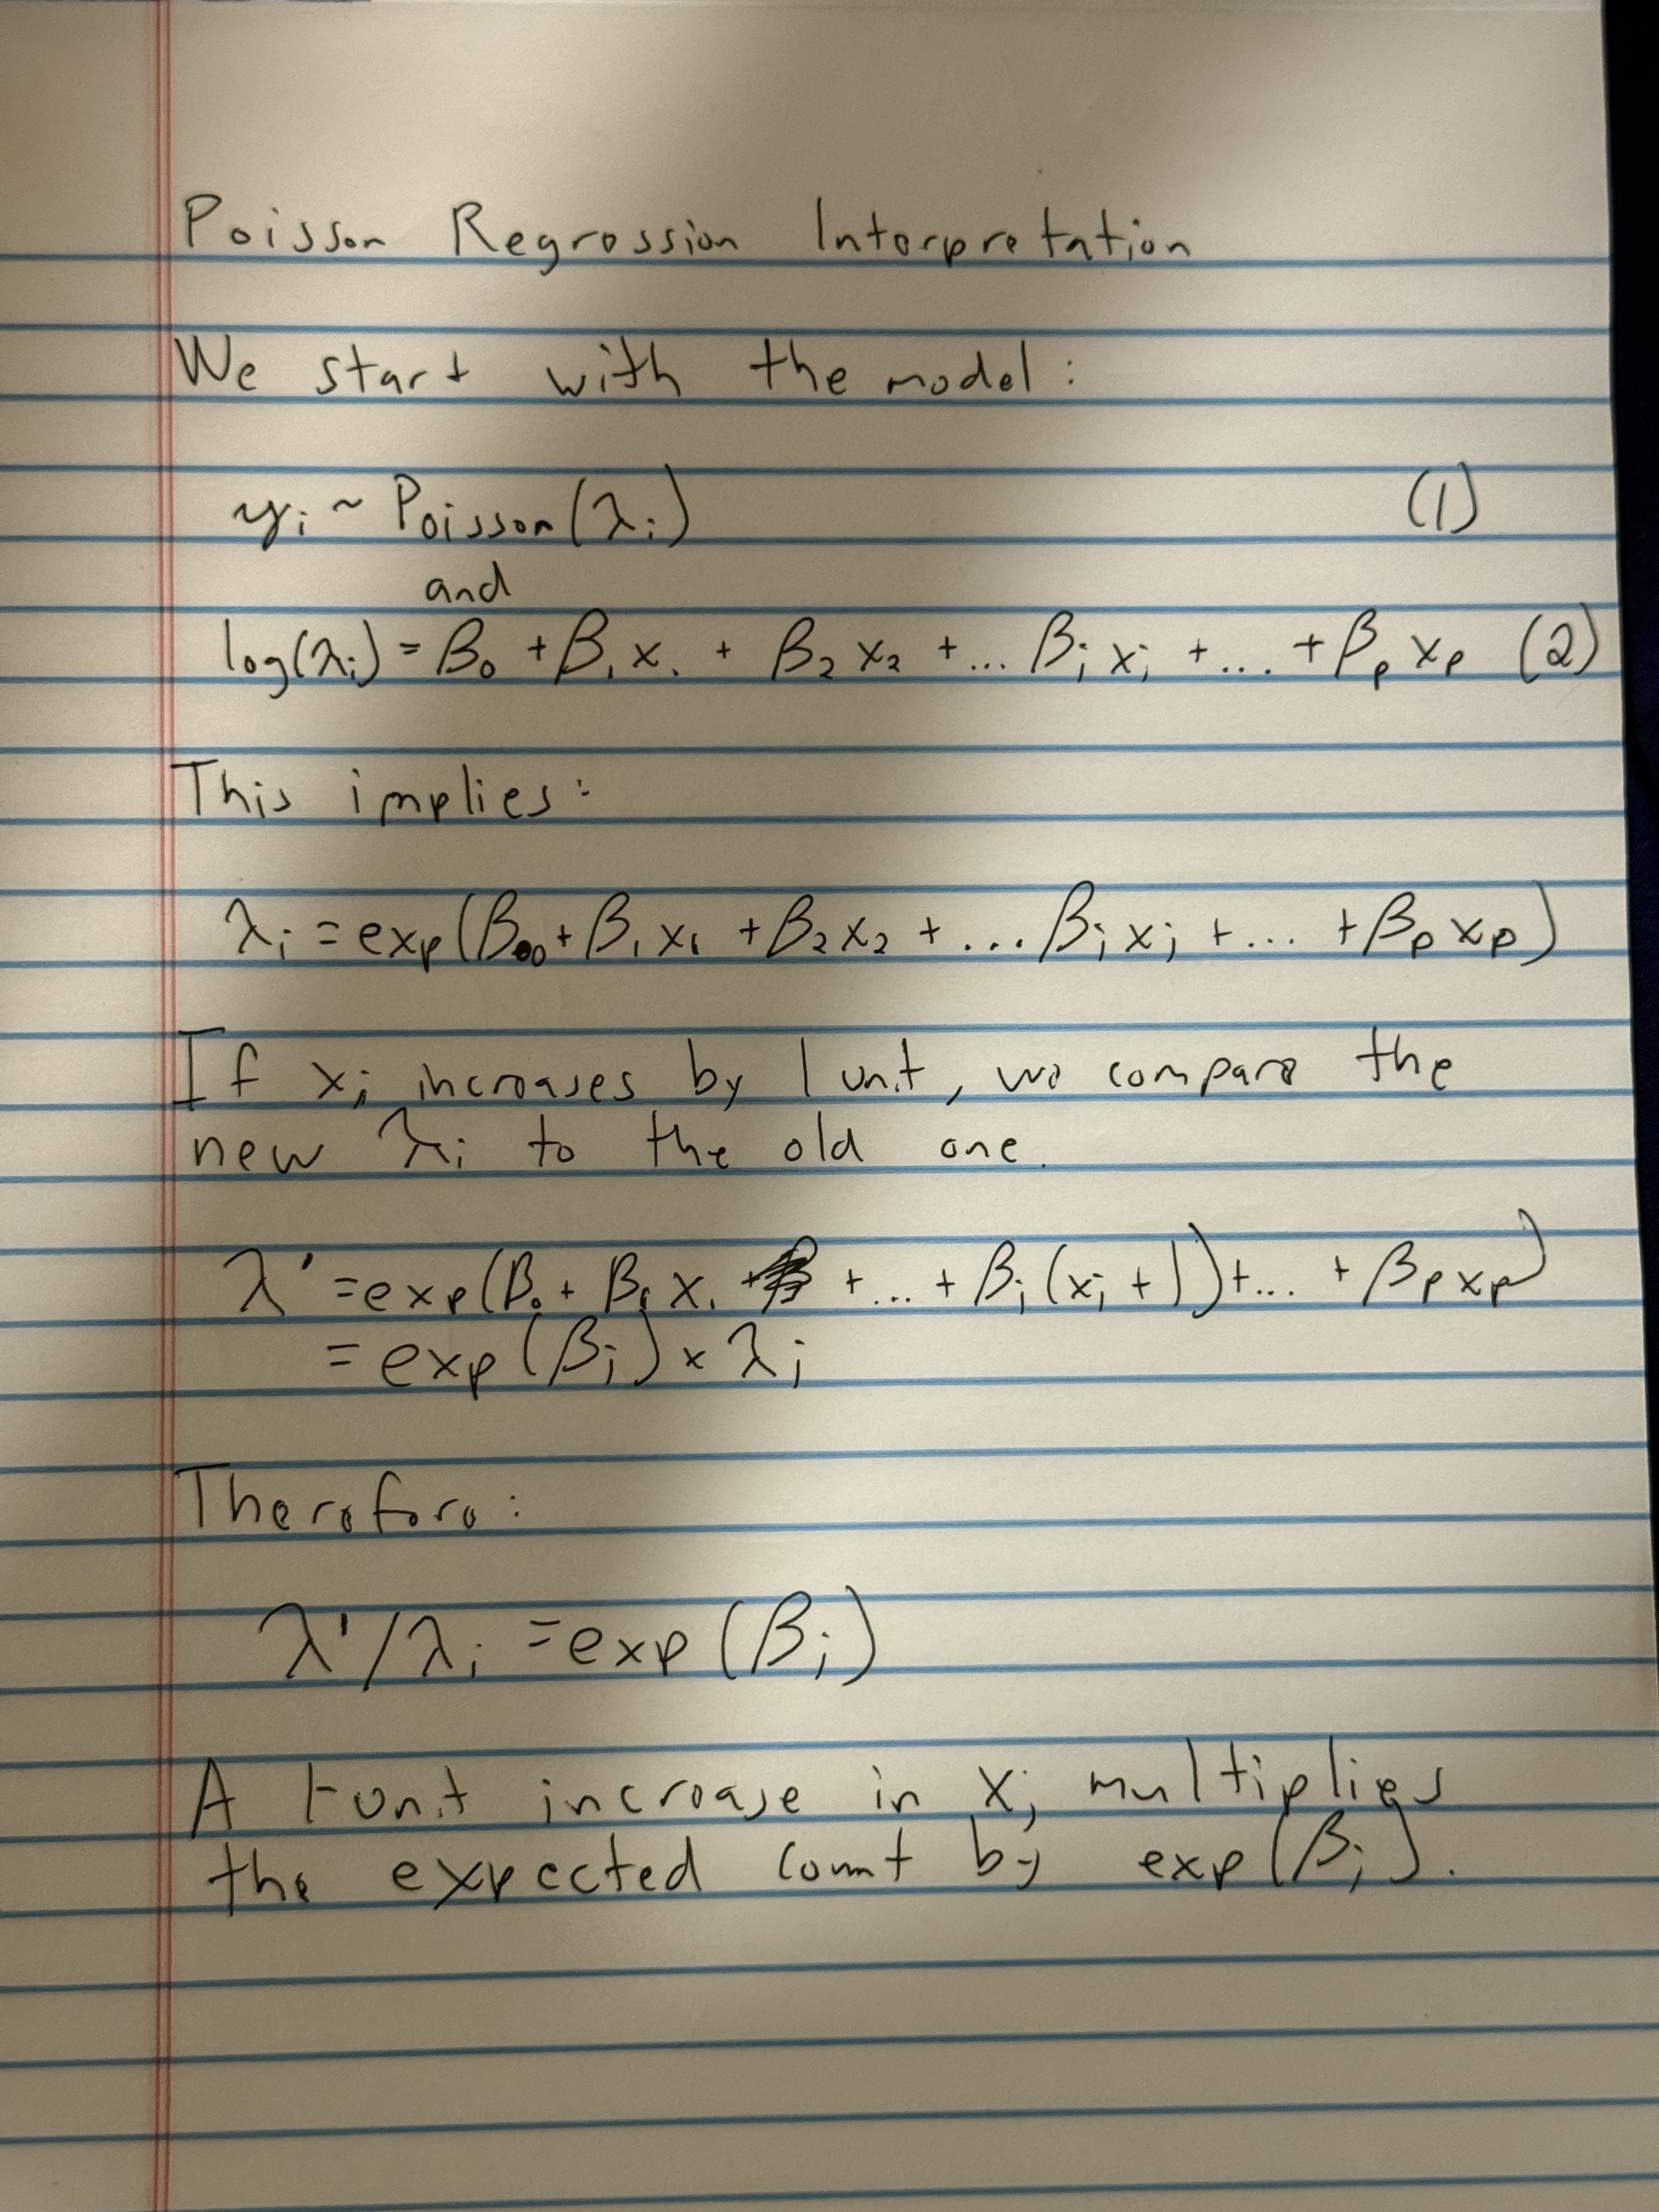 Poisson Regression Interpretation
We start with the model:
yᵢ ~ Poisson(λᵢ) (1)
and
log(λᵢ) = β₀ + β₁x₁ + β₂x₂ + ... βⱼxⱼ + ... + βₚxₚ (2)
This implies:
λᵢ = exp(β₀ + β₁x₁ + β₂x₂ + ... βⱼxⱼ + ... + βₚxₚ)
If xⱼ increases by 1 unit, we compare the
new λᵢ to the old one.
λ' = exp(β₀ + β₁x₁ + ... + βⱼ(xⱼ + 1) + ... + βₚxₚ)
= exp(βⱼ) × λⱼ
Therefore:
λ'/λᵢ = exp(βⱼ)
A 1-unit increase in xⱼ multiplies
the expected count by exp(βⱼ).